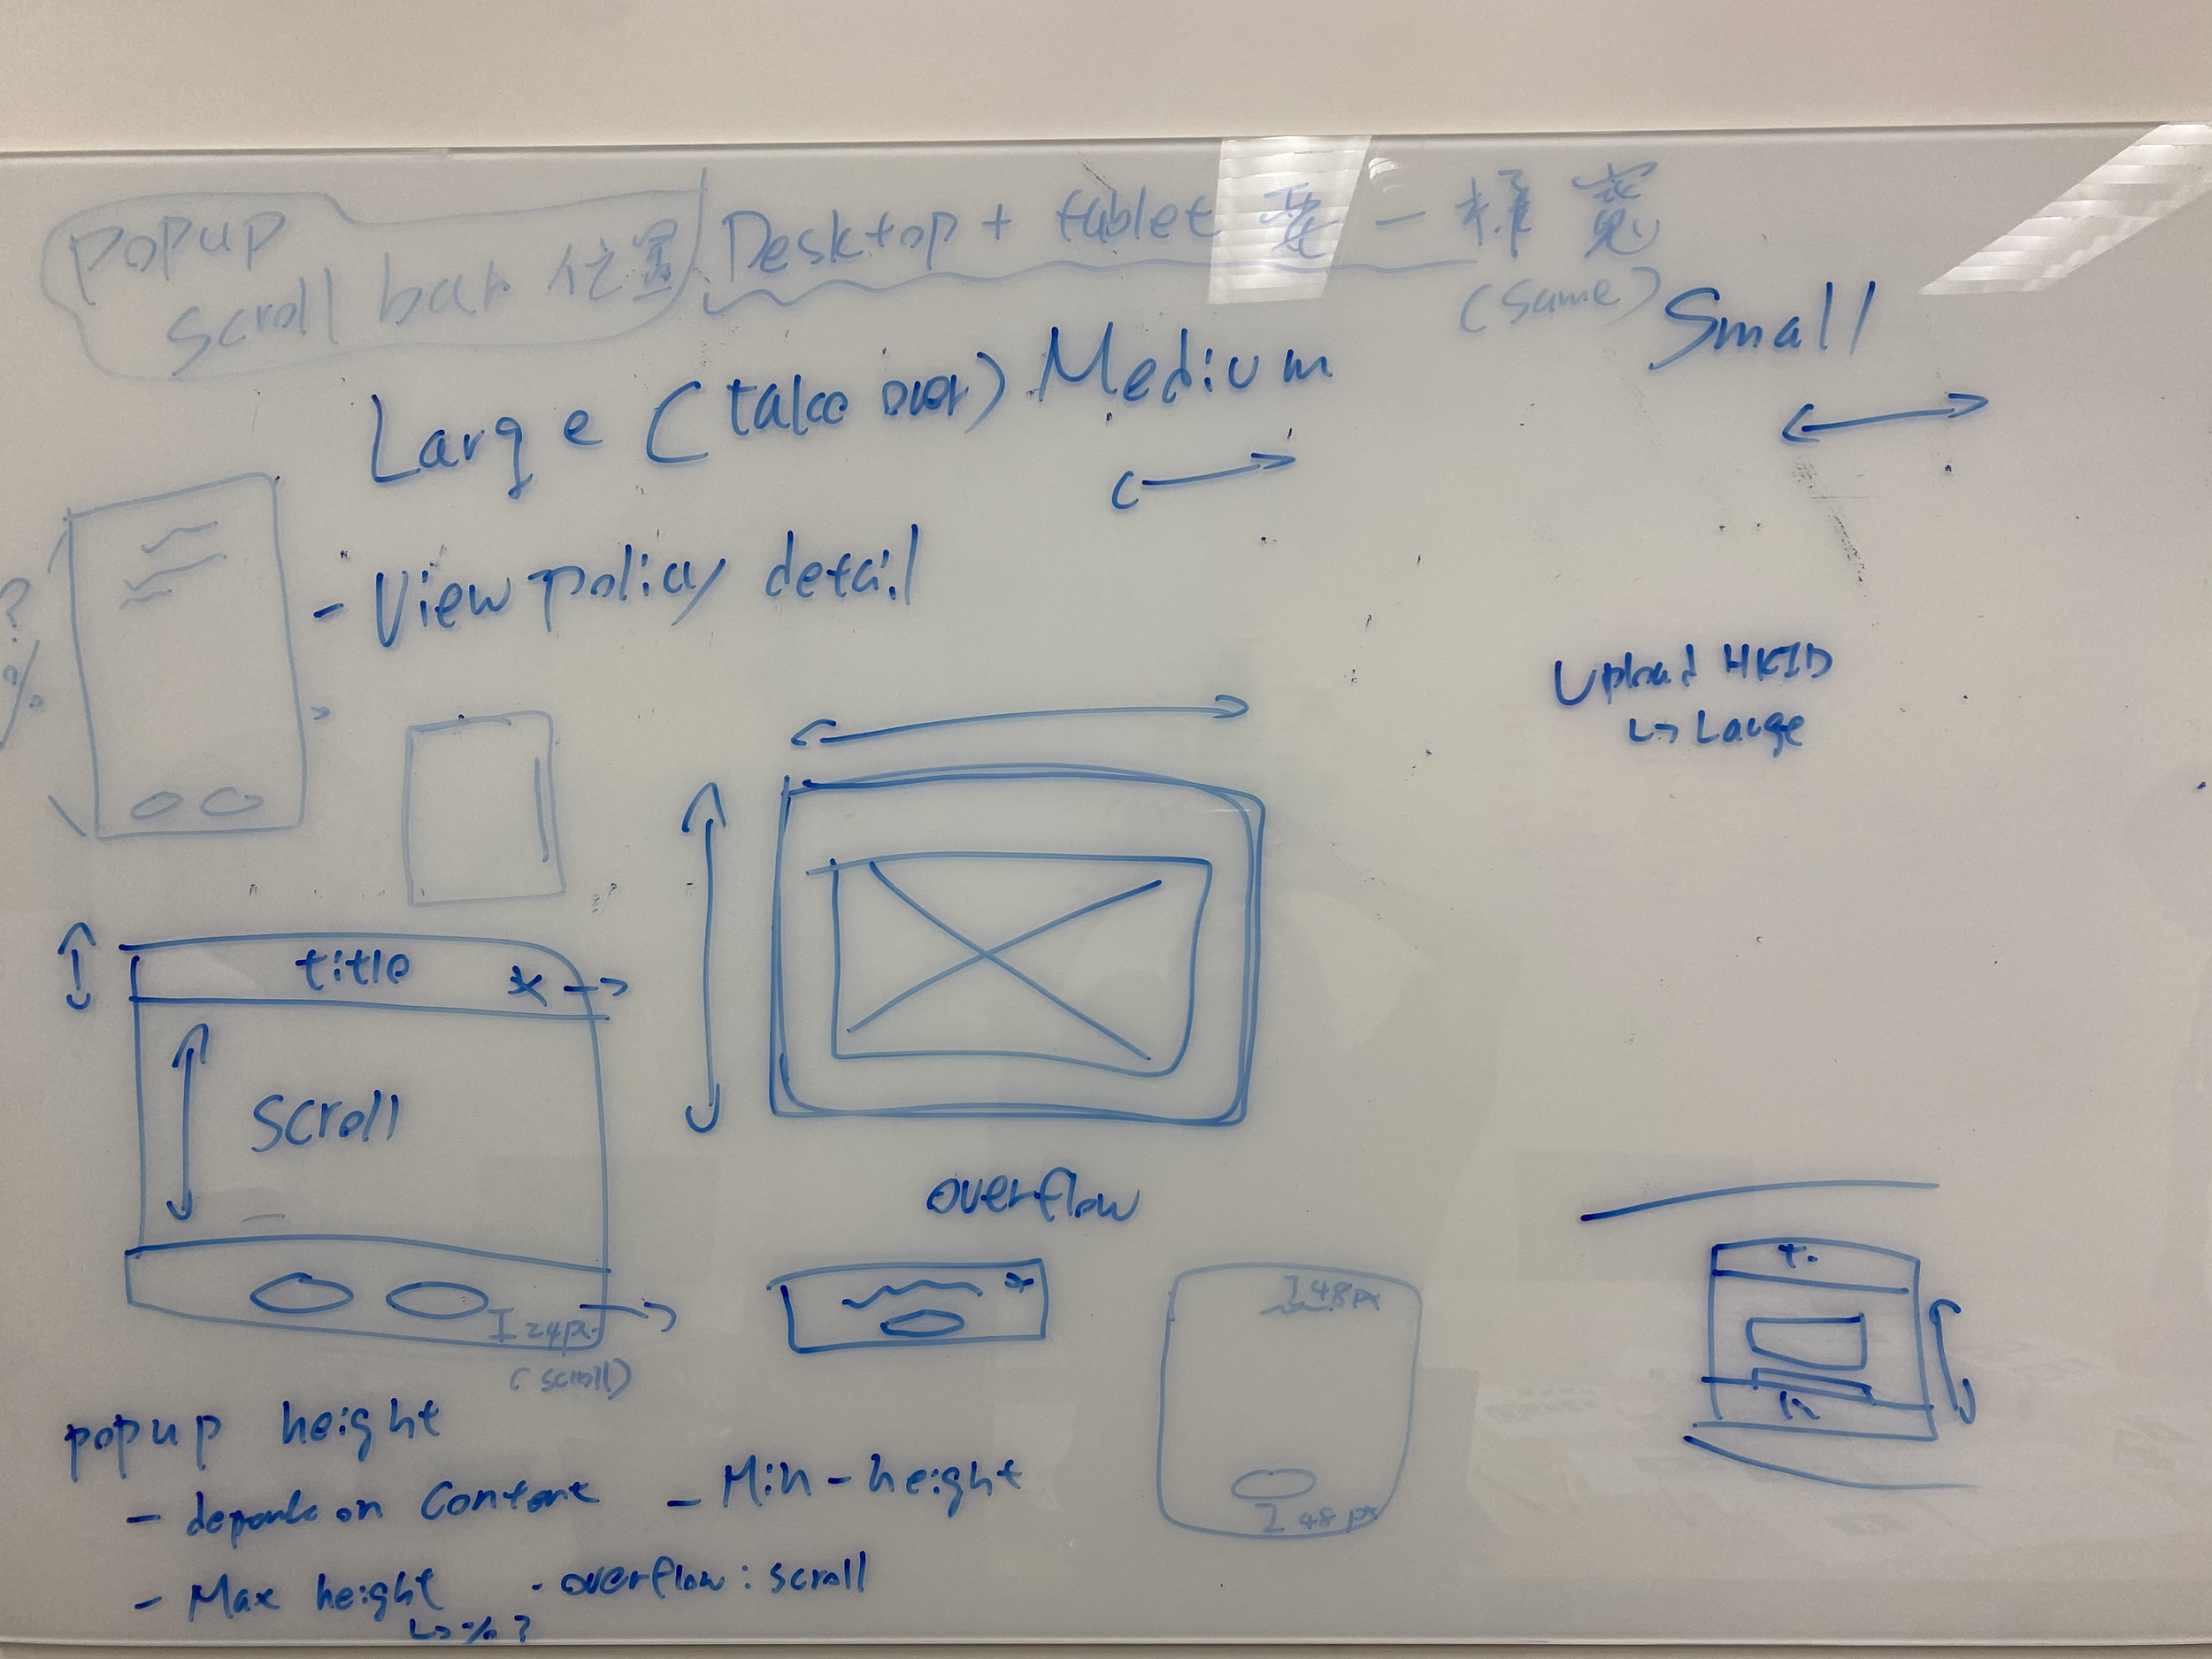 popup
scroll bar 位置
Desktop + tablet 要一樣寬
(same)
Large (take over)
Medium
Small
- View policy detail
?
%
Upload HKID
↳ Large
title
x
scroll
24px
(scroll)
overflow
x
48px
48px
t.
popup height
- depends on content
- Min-height
- Max height
↳ % ?
- overflow: scroll